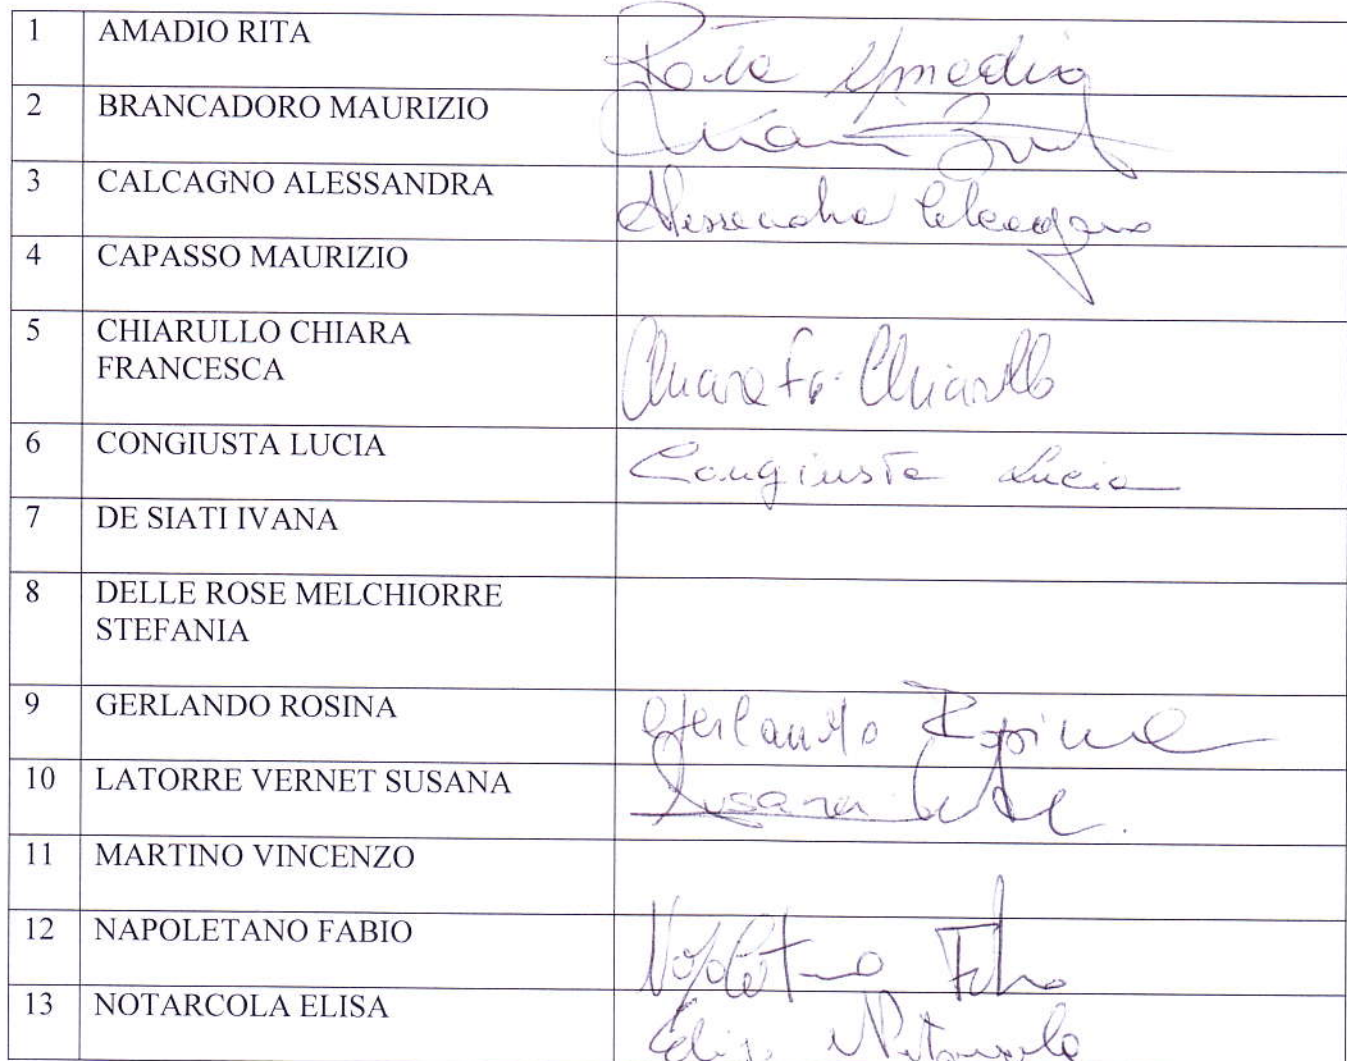 1 AMADIO RITA Rita Amadio
2 BRANCADORO MAURIZIO
3 CALCAGNO ALESSANDRA Alessandra Calcagno
4 CAPASSO MAURIZIO
5 CHIARULLO CHIARA
FRANCESCA Chiara Fr. Chiarullo
6 CONGIUSTA LUCIA Congiusta Lucia
7 DE SIATI IVANA
8 DELLE ROSE MELCHIORRE
STEFANIA
9 GERLANDO ROSINA Gerlando Rosina
10 LATORRE VERNET SUSANA Susana
11 MARTINO VINCENZO
12 NAPOLETANO FABIO Napoletano Fabio
13 NOTARCOLA ELISA Elisa Notarcola